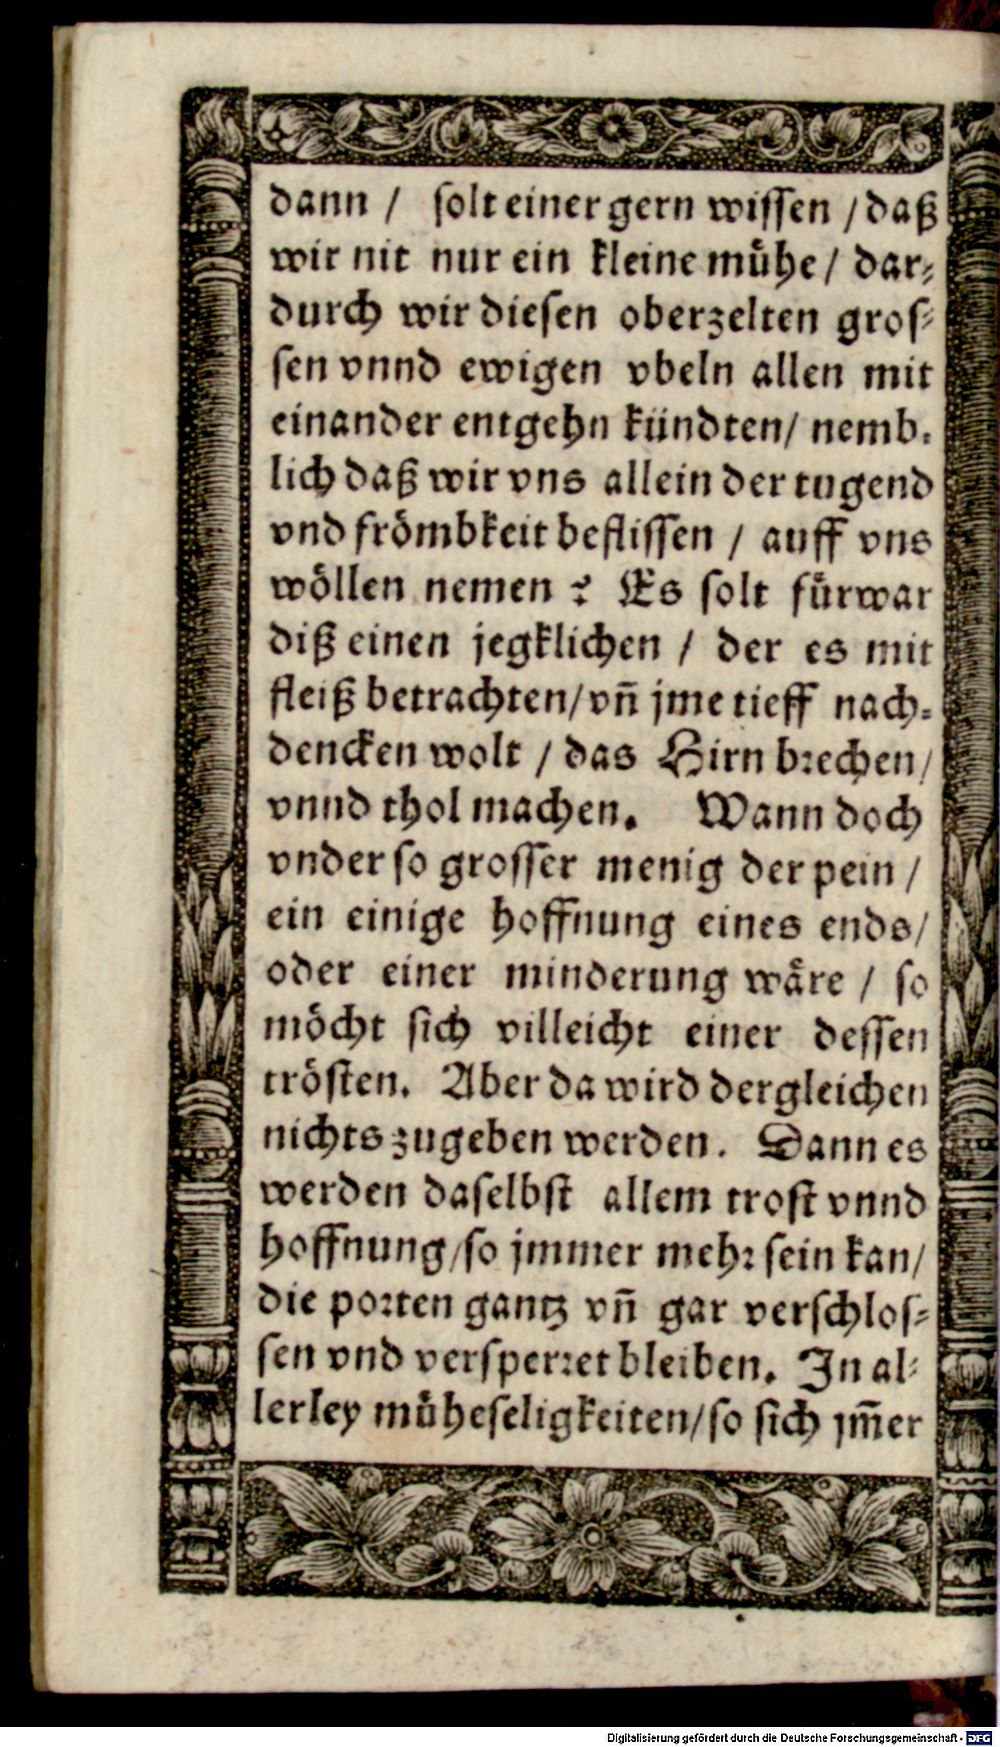 dann / solt einer gern wissen / daß
wir nit nur ein kleine mühe / dar⸗
durch wir diesen oberzelten gros⸗
sen vnnd ewigen vbeln allen mit
einander entgehn kündten / nemb⸗
lich daß wir vns allein der tugend
vnd frömbkeit beflissen / auff vns
wöllen nemen ? Es solt fürwar
diß einen jegklichen / der es mit
fleiß betrachten / vñ jme tieff nach⸗
dencken wolt / das Hirn brechen /
vnnd thol machen. Wann doch
vnder so grosser menig der pein /
ein einige hoffnung eines ends /
oder einer minderung wäre / so
möcht sich villeicht einer dessen
trösten. Aber da wird dergleichen
nichts zugeben werden. Dann es
werden daselbst allem trost vnnd
hoffnung / so jmmer mehr sein kan /
die porten gantz vñ gar verschlos⸗
sen vnd versperret bleiben. In al⸗
lerley müheseligkeiten / so sich jm̃er
Digitalisierung gefördert durch die Deutsche Forschungsgemeinschaft - DFG